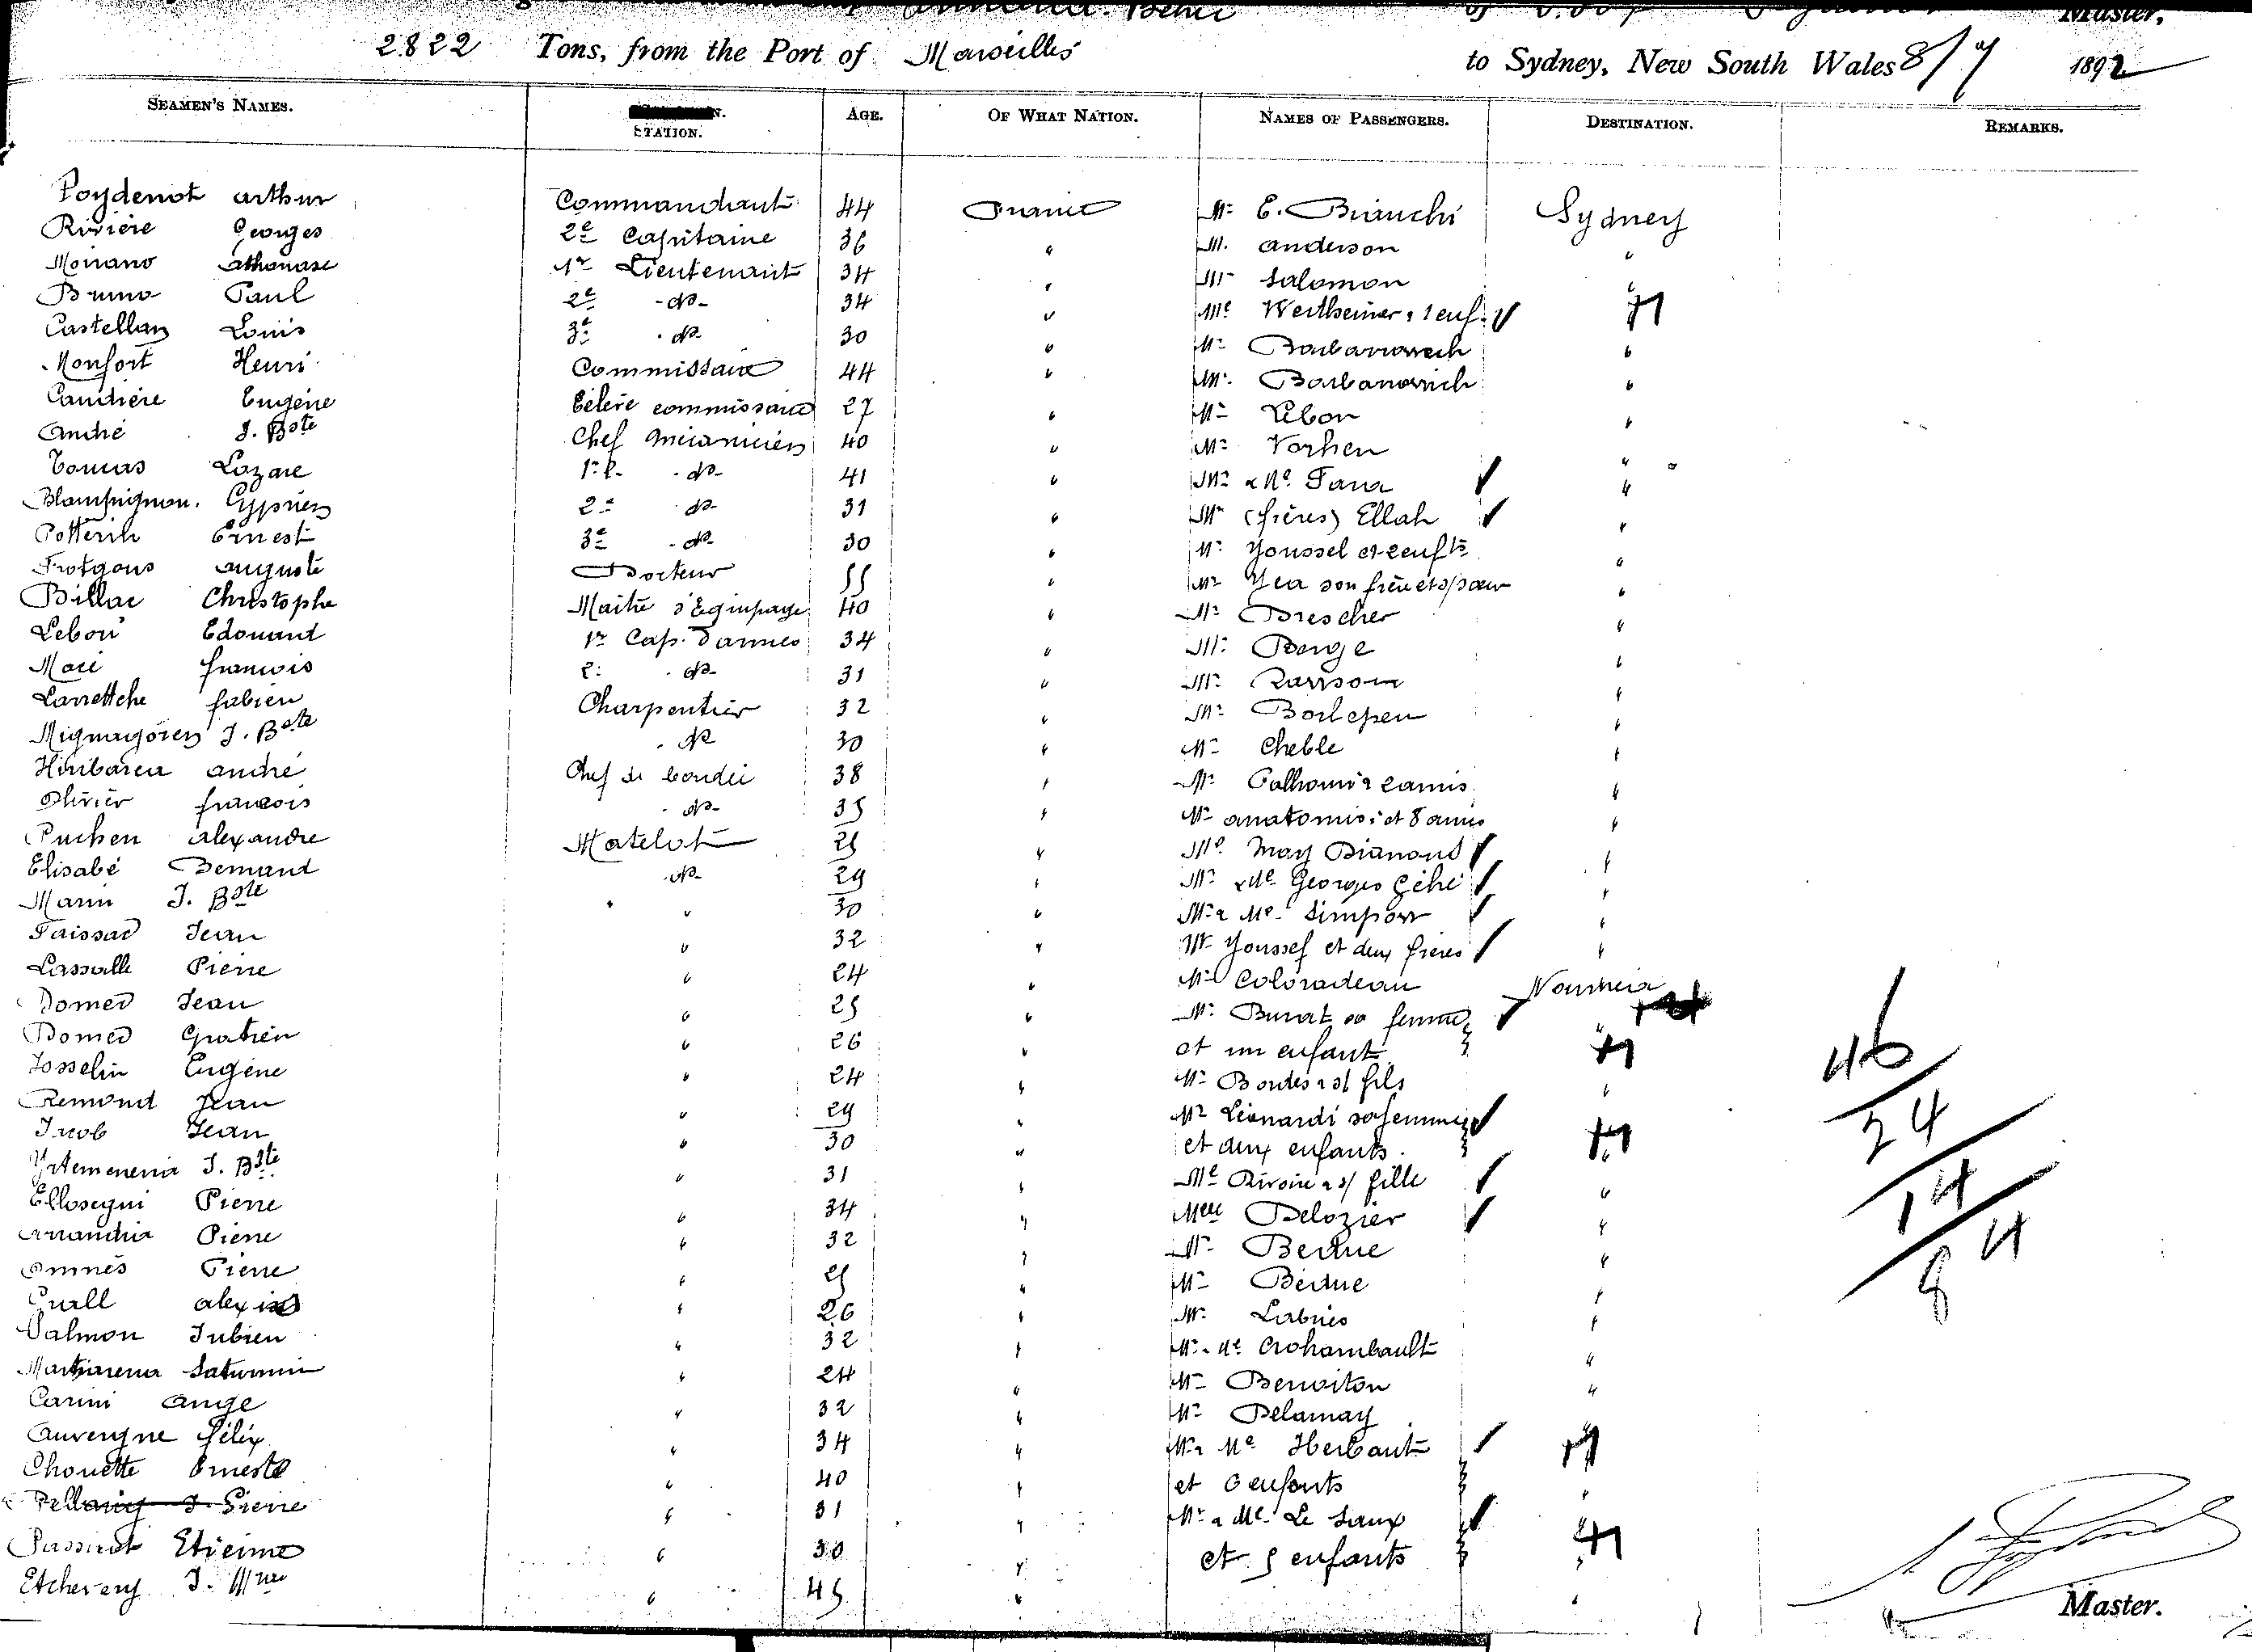 Béhic Master,
2822 Tons, from the Port of Marseilles to Sydney, New South Wales 8/7 1892
SEAMEN'S NAMES. STATION. AGE. OF WHAT NATION. NAMES OF PASSENGERS. DESTINATION. REMARKS.
Poydenot arthur Commandant 44 France Mr E. Bianchi Sydney
Rivière Georges 2e Capitaine 36 " M. anderson "
Moriano athanase 1er Lieutenant 34 " Mr Salomon "
Bruno Paul 2e -do- 34 " Me Wertheimer, 1 enf.
Castellan Louis 3e do- 30 " Mr "
Monfort Henri Commissaire 44 " Mr. Barbanovich "
Eugène Elève commissaire 27 " Mr Lebon "
André J. Bste Chef Mécanicien 40 " Mr Vorhen "
Lazare 1r do- 41 " Mr & Me Fara "
Blampignon. Cyprien 2e do- 31 " Mr (frères) Ellah "
Potterih Ernest 3e do- 30 " Mr Youssel et 2 enfts "
auguste Docteur 55 " Mr Yea son frère et s/ sœur "
Billac Christophe Maître d'Equipage 40 " Mr Drescher "
Lebon Edouard 1er Cap. d'armes 34 " Mr Berge "
françois 2e do- 31 " Mr Ransom "
Larretche fabien Charpentier 32 " Mr "
J. Bste do 30 " Mr Cheble "
Hiribaren andré Chef de 38 " Mr "
Olivier françois do- 35 " Mr anatomis et 8 amis "
Puchen alexandre Matelot 25 " Me May Diamond "
Elisabé Bernard do- 29 " Mr & Me Georges Géhé "
Marin J. Bste " 30 " Mr & Me Simpson "
Faissad Jean " 32 " Mr Youssef et deux frères "
Lassalle Pierre " 24 " Mr Coloradeau Nouméa
Domed Jean " 25 " Mr Burat sa femme "
Domed Gratien " 26 " et un enfant
Josselin Eugène " 24 " Mr Bordes & s/ fils "
Remond Jean " 29 " Mr Léonardi sa femme
Jacob Jean " 30 " et deux enfants "
J. Bste " 31 " Me Rivoire & s/ fille "
Ellosegui Pierre " 34 " Melle Delozier "
Pierre " 32 " Mr Berdue "
Omnès Pierre " 25 " Mr Berdue "
Guall alexis " 26 " Mr Labriès "
Valmon Jubien " 32 " Mr & Me Crohambault "
Martiarena Saturnin " 24 " Mr Benoiton "
Carini Ange " 32 " Mr Delamay "
Auvergne félix " 34 " Mr & Me Herbaut
Chouette Ernest " 40 " et 6 enfants "
Pierre " 31 " Mr & Me Le Saux "
Etienne " 30 " et 5 enfants "
Etchevery J. " 45 " "
46
24
14
84
Master.